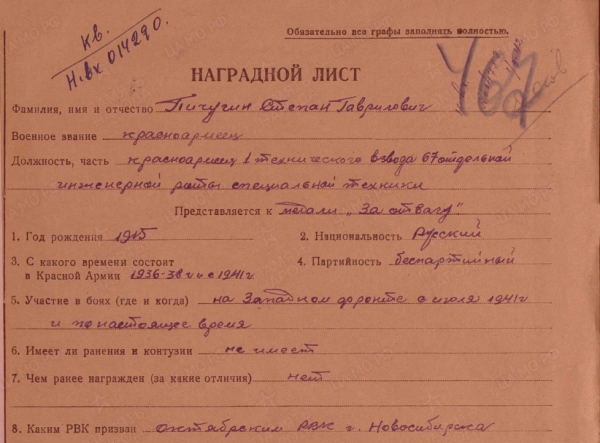 Обязательно все графы заполнять полностью.
Кв.
Н.вх 014290.
НАГРАДНОЙ ЛИСТ
Фамилия, имя и отчество Пичугин Степан Гаврилович
Военное звание красноармеец
Должность, часть красноармеец 1 технического взвода 67 отдельной
инженерной роты специальной техники
Представляется к медали „За отвагу"
1. Год рождения 1915
2. Национальность Русский
3. С какого времени состоит
в Красной Армии 1936-38 г и с 1941 г
4. Партийность беспартийный
5. Участие в боях (где и когда) на Западном фронте с июля 1941 г
и по настоящее время
6. Имеет ли ранения и контузии не имеет
7. Чем ранее награжден (за какие отличия) нет
8. Каким РВК призван октябрьским РВК г. Новосибирска